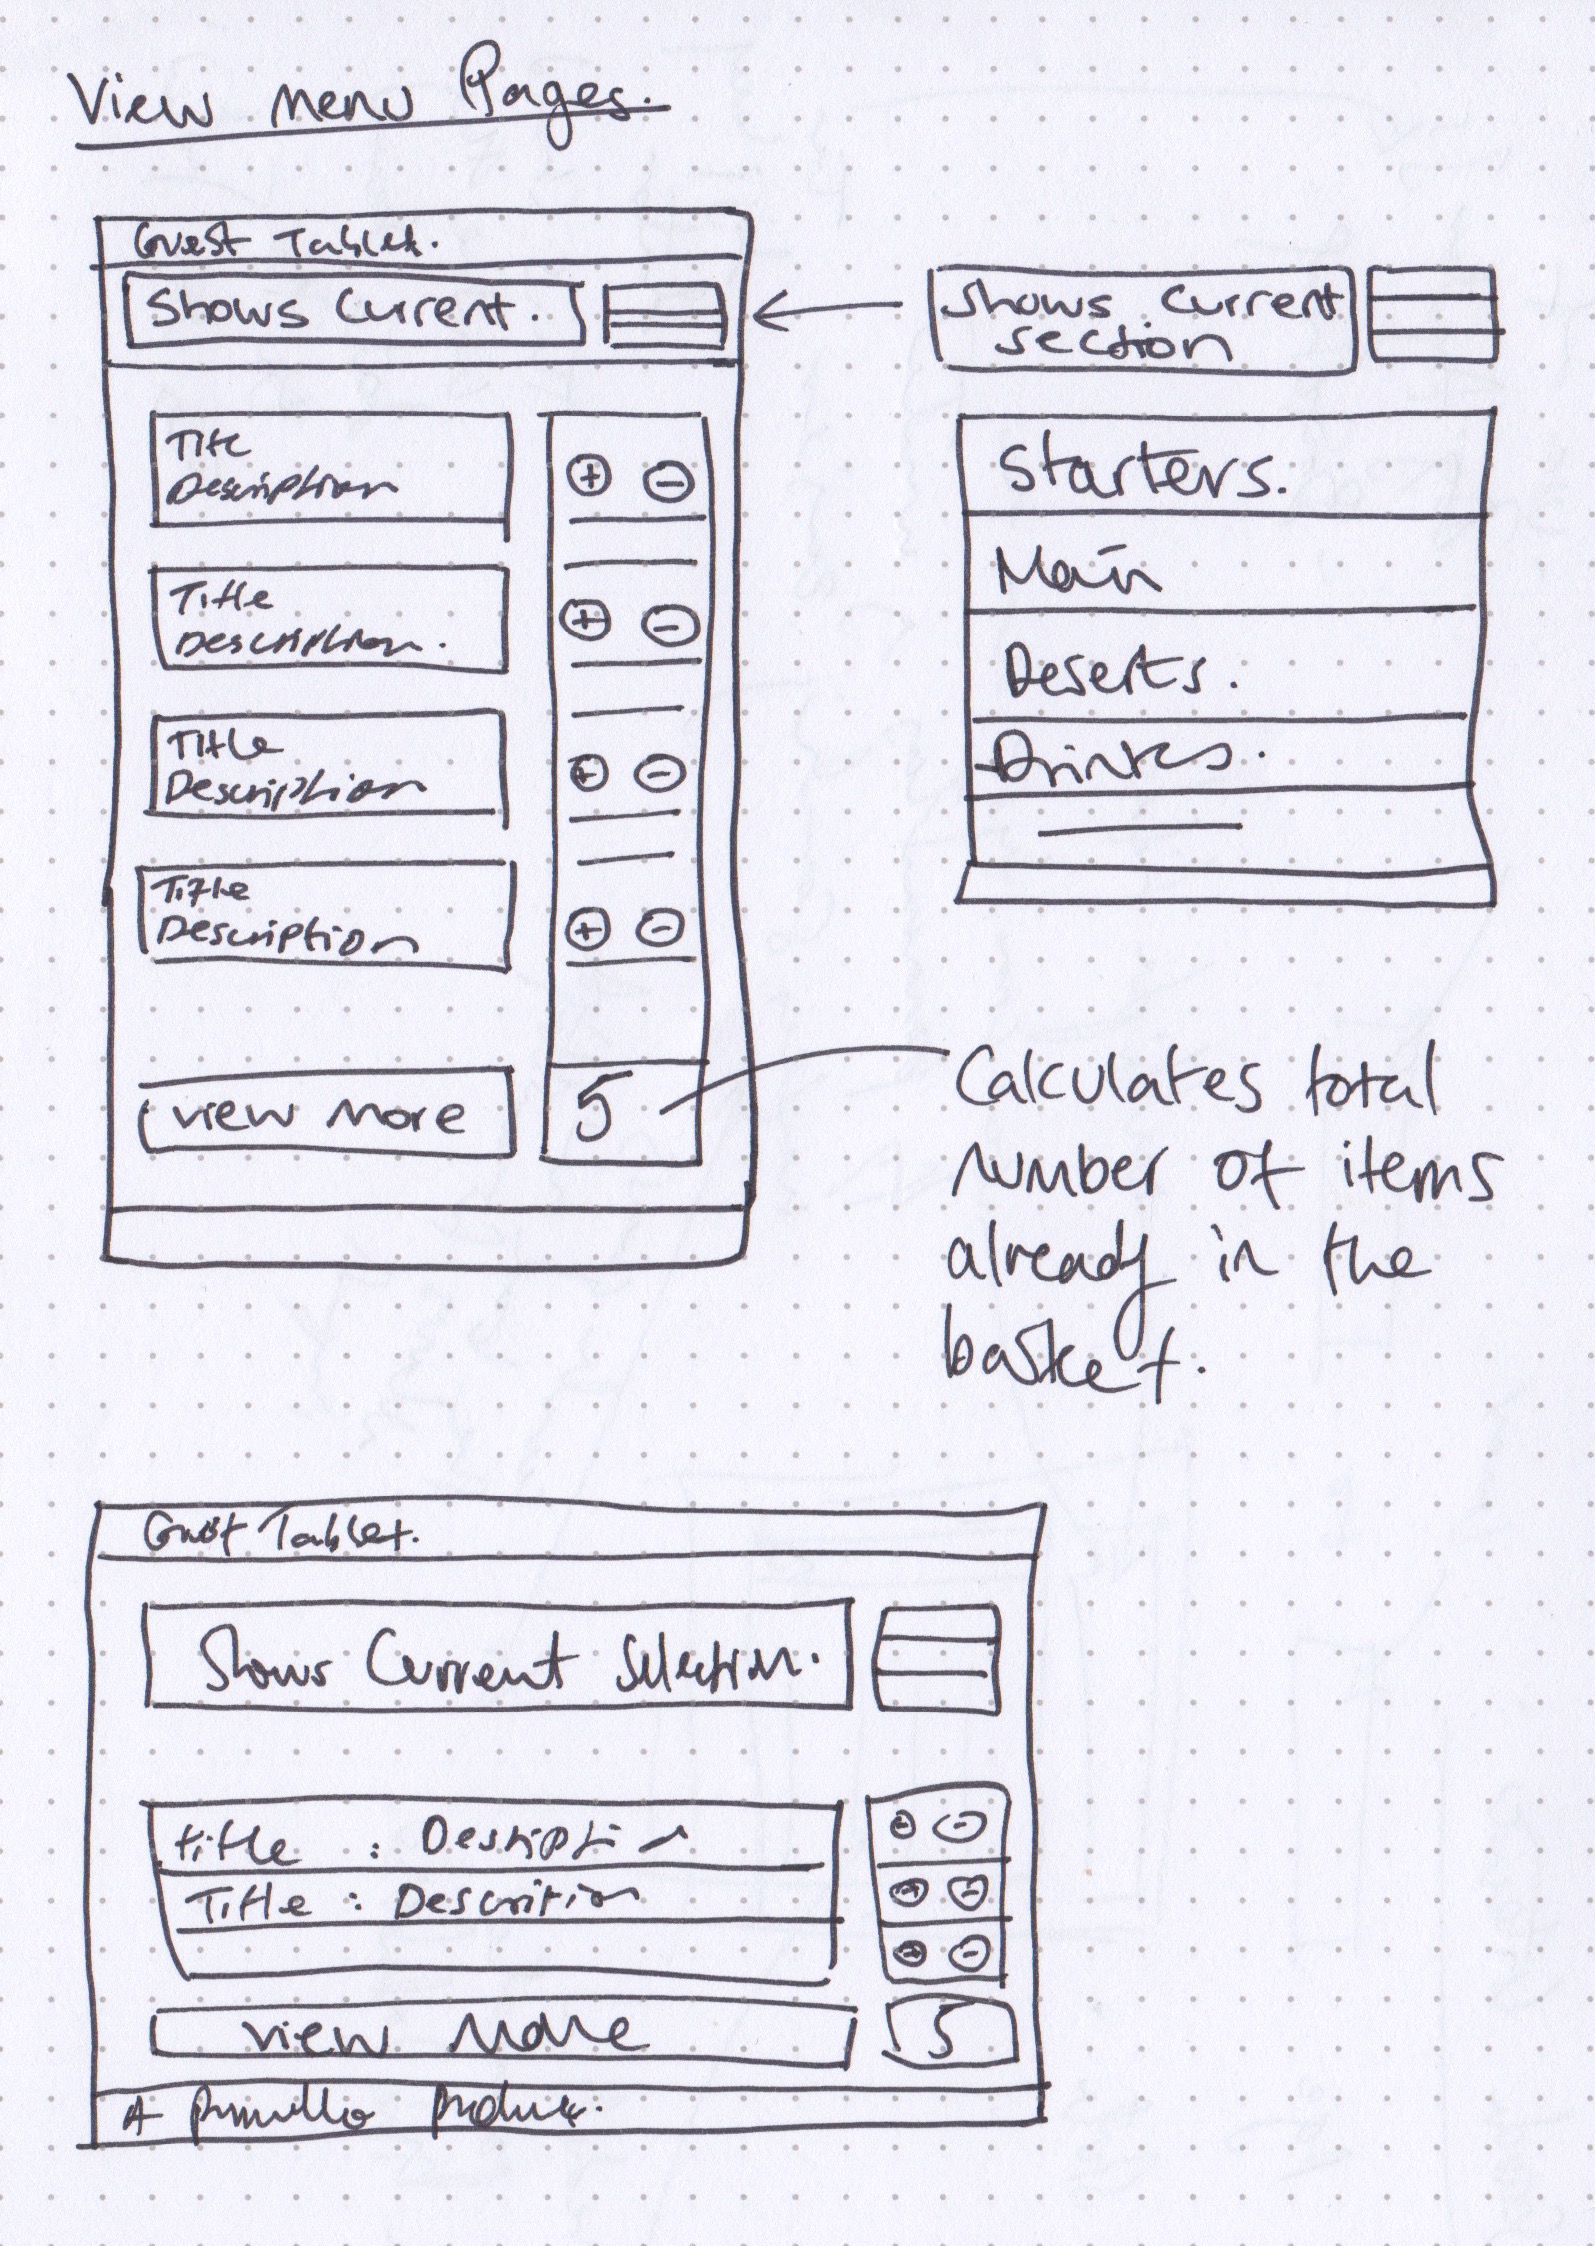 View menu Pages.
Guest Tablet.
Shows Current.
Title
Description
+ -
Title
Description.
+ -
Title
Description
+ -
Title
Description
+ -
view more
5
Shows Current
section
Starters.
Main
Deserts.
Drinks.
Calculates total
number of items
already in the
basket.
Guest Tablet.
Shows Current Selection.
title : Descripti
+ -
Title : Descrition
+ -
+ -
view More
5
A